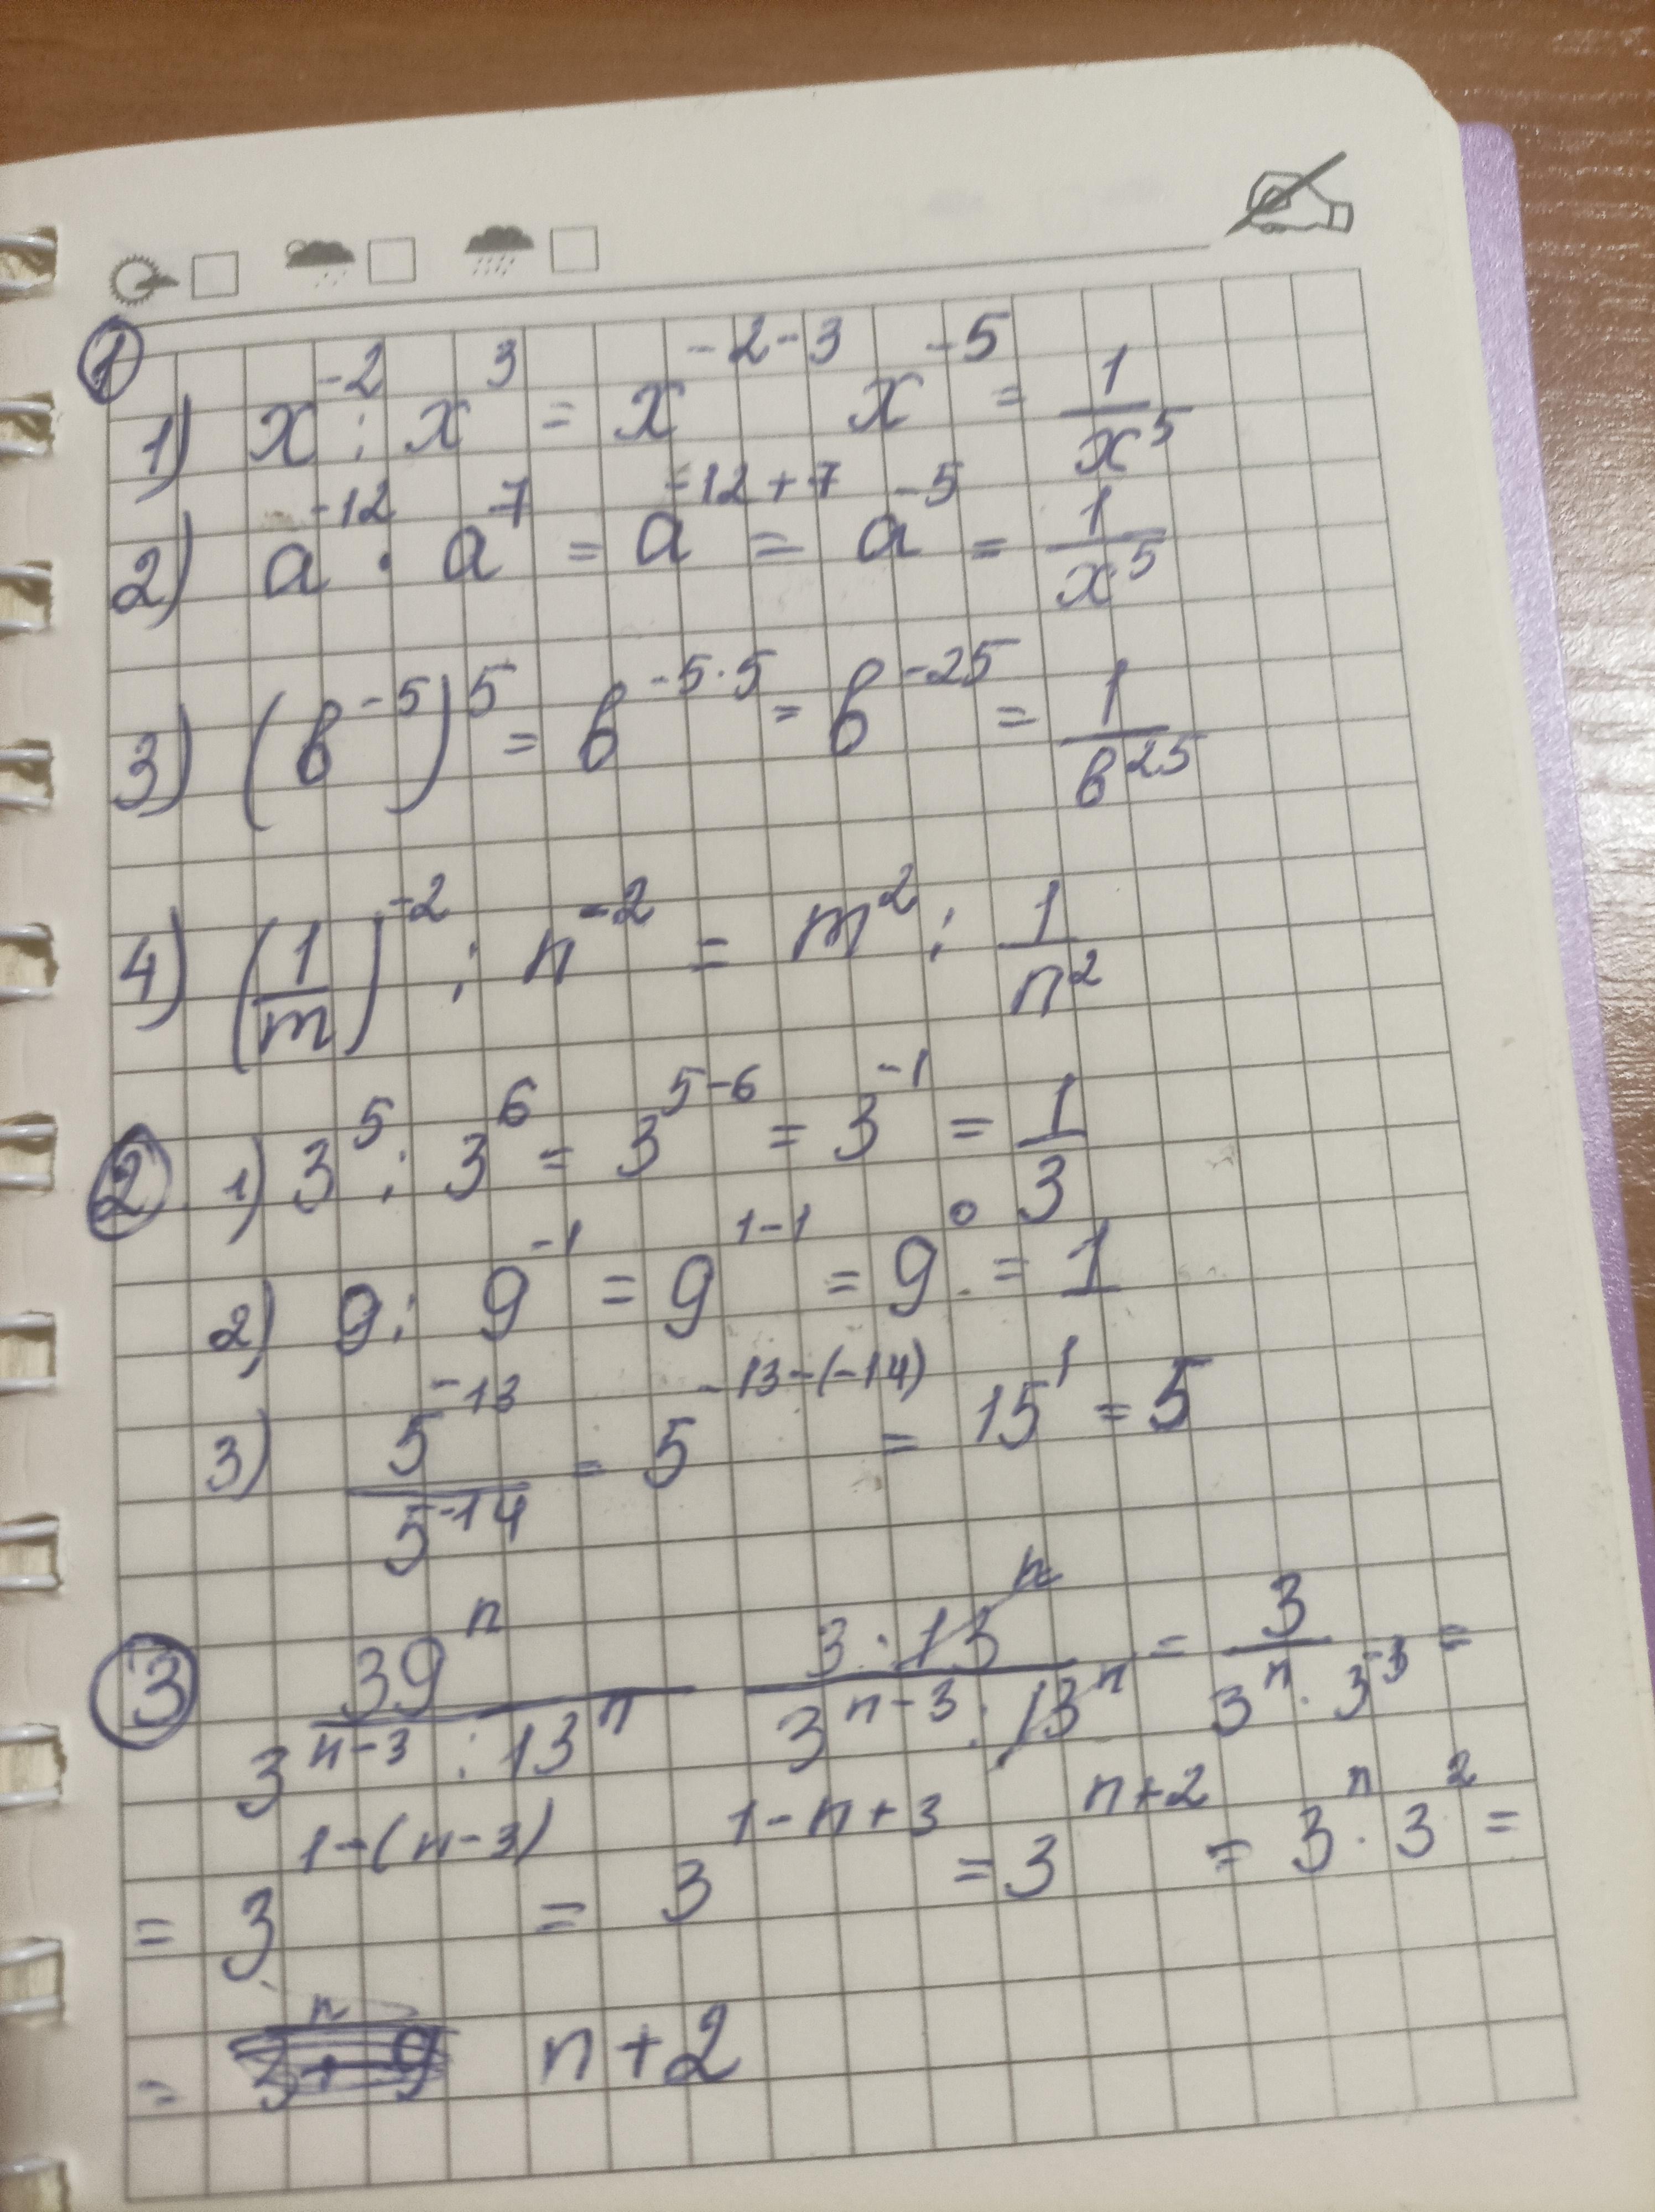 ①
1) x⁻² : x³ = x⁻²⁻³ x⁻⁵ = 1/x⁵
2) a⁻¹² · a⁷ = a⁻¹²⁺⁷ = a⁻⁵ = 1/x⁵
3) (b⁻⁵)⁵ = b⁻⁵·⁵ = b⁻²⁵ = 1/b²⁵
4) (1/m)⁻² : n⁻² = m² : 1/n²
② 1) 3⁵ : 3⁶ = 3⁵⁻⁶ = 3⁻¹ = 1/3
2) 9 : 9⁻¹ = 9¹⁻¹ = 9⁰ = 1
3) 5⁻¹³/5⁻¹⁴ = 5^(-13-(-14)) = 15¹ = 5
③ 39ⁿ/(3ⁿ⁻³ : 13ⁿ) (3 · 13ⁿ)/(3ⁿ⁻³ : 13ⁿ) = 3/(3ⁿ · 3⁻³) =
= 3^(1-(n-3)) = 3^(1-n+3) = 3ⁿ⁺² = 3ⁿ · 3² =
= n+2